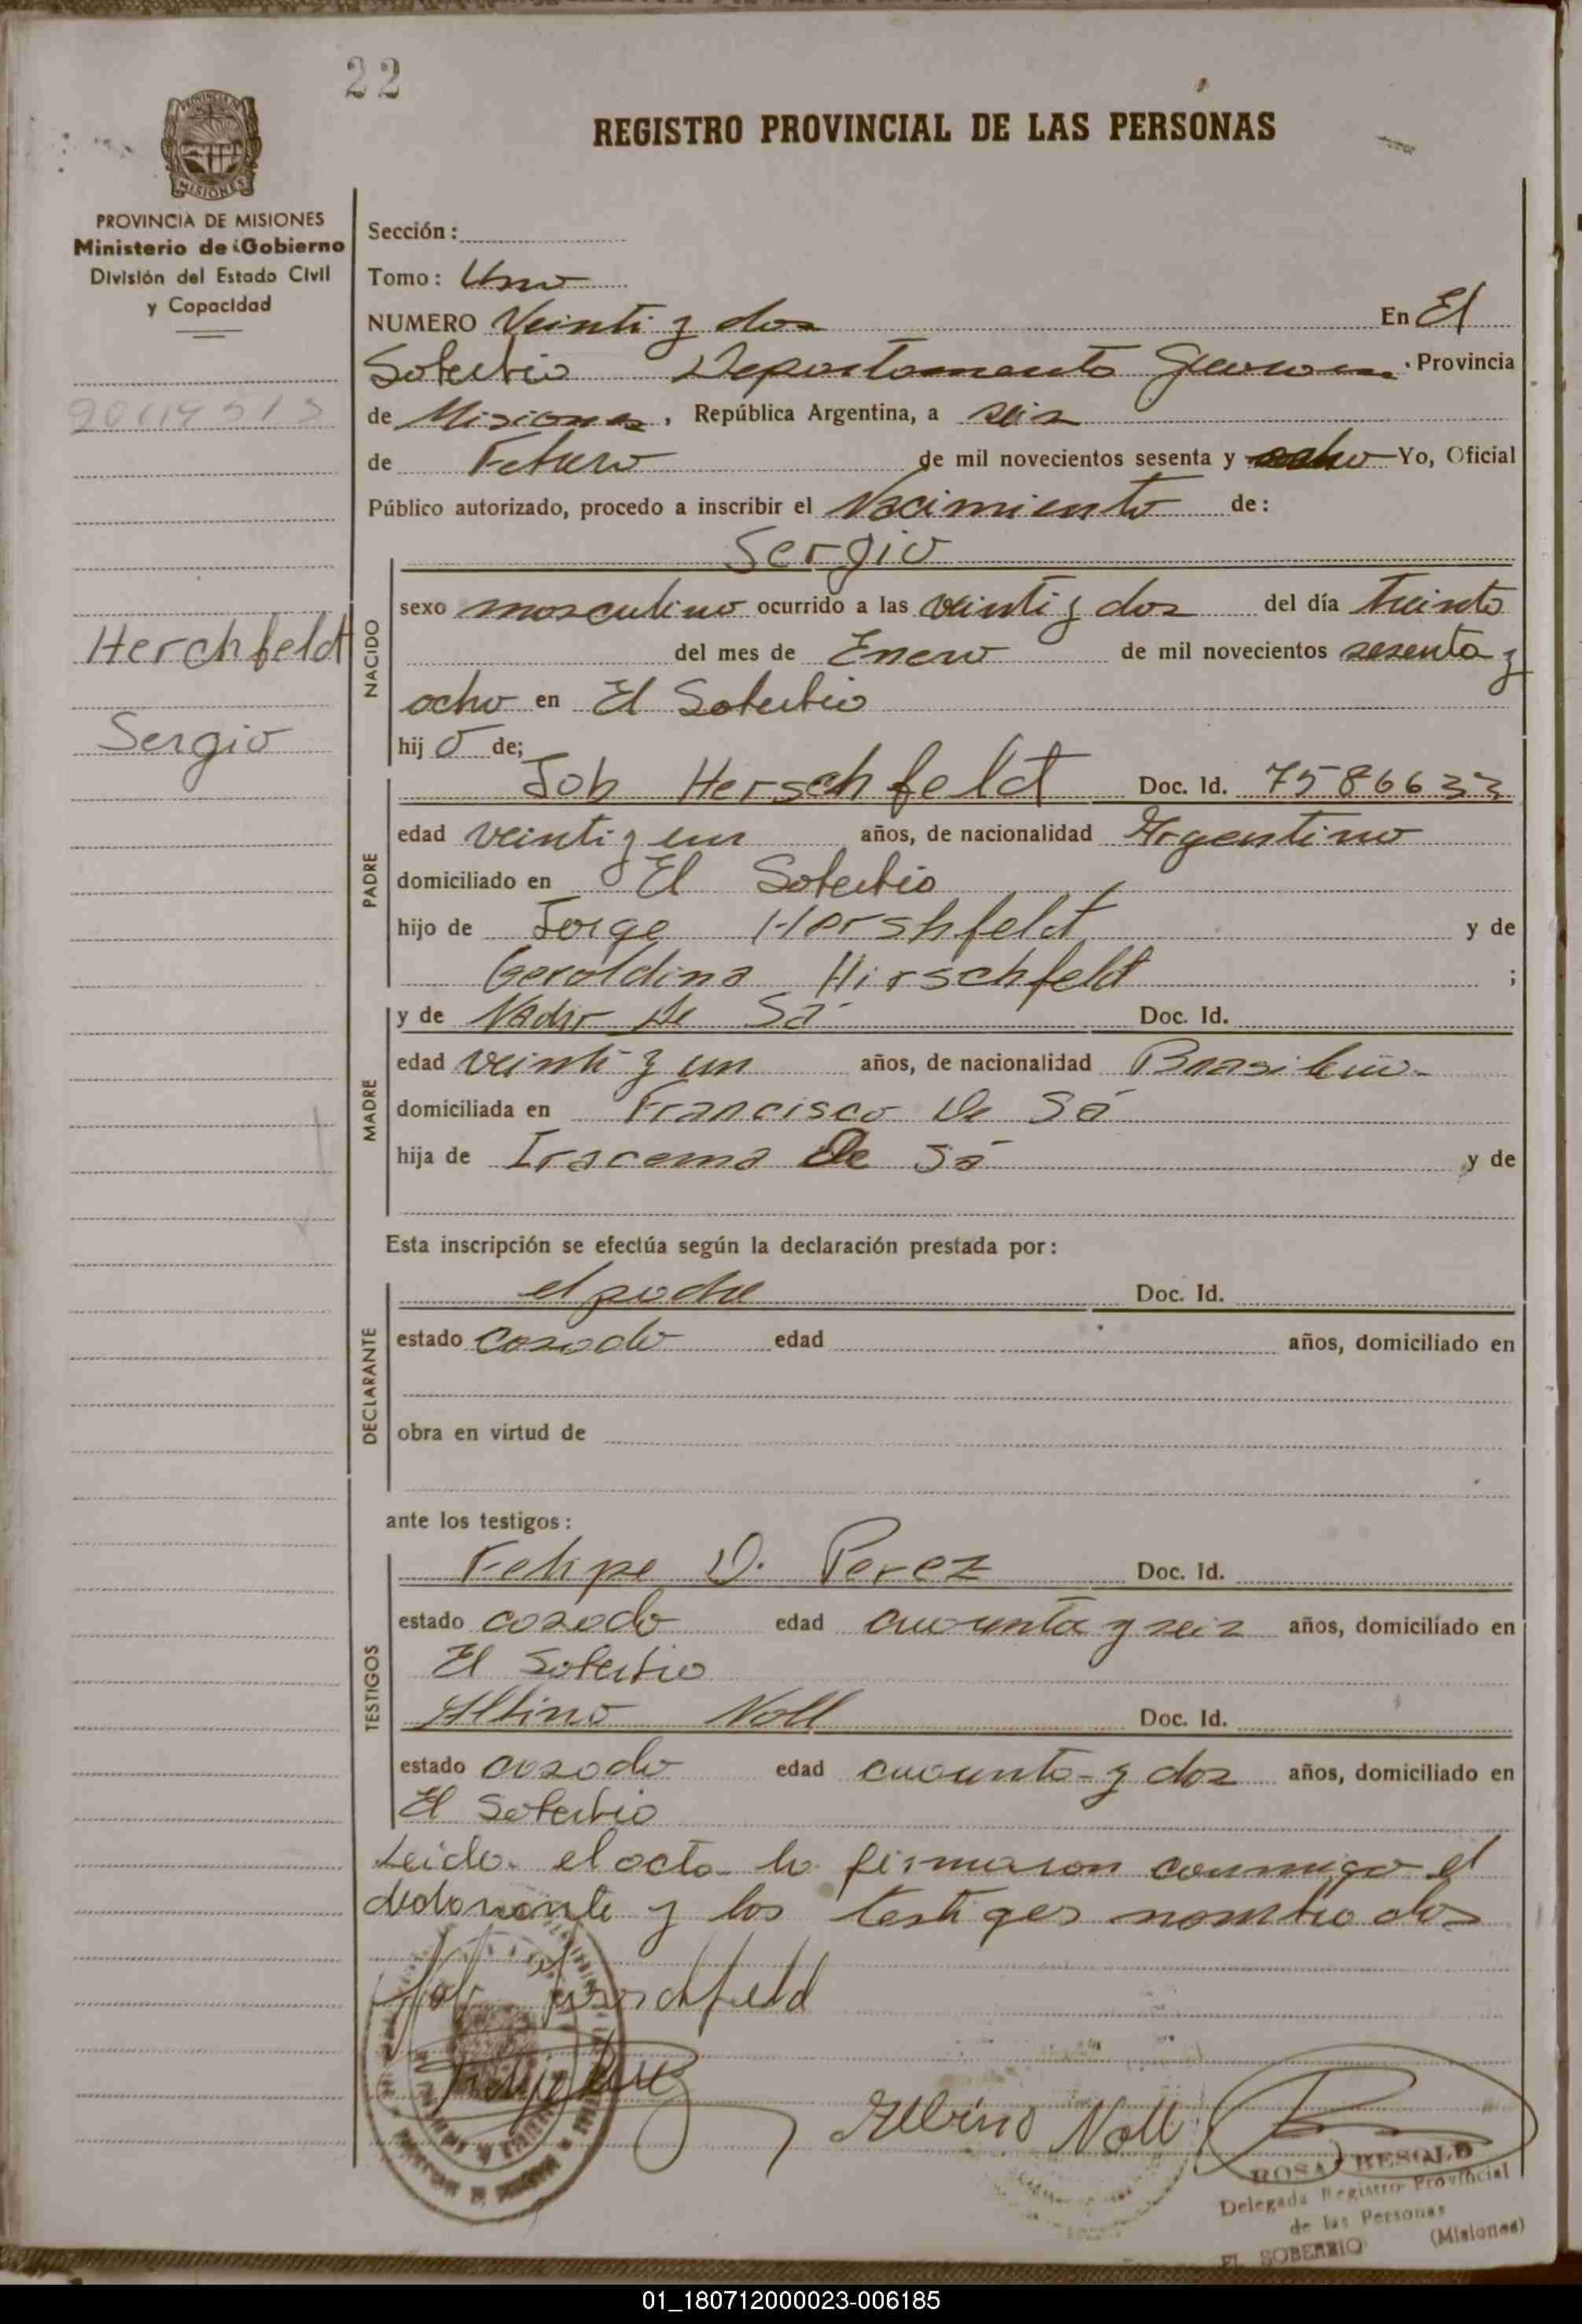 22
REGISTRO PROVINCIAL DE LAS PERSONAS
MISIONES
PROVINCIA DE MISIONES
Ministerio de Gobierno
División del Estado Civil
y Capacidad
Herchfeldt
Sergio
Sección:
Tomo: Uno
NUMERO Veinti y dos En El
Soberbio Departamento Guarani. Provincia
de Misiones, República Argentina, a seis
de Febrero de mil novecientos sesenta y ocho Yo, Oficial
Público autorizado, procedo a inscribir el Nacimiento de:
Sergio
NACIDO
sexo masculino ocurrido a las veinti y dos del día treinta
del mes de Enero de mil novecientos sesenta y
ocho en El Soberbio
hij o de;
PADRE
Job Herschfeldt Doc. Id. 7586633
edad veinti y un años, de nacionalidad Argentino
domiciliado en El Soberbio
hijo de Jorge Hershfeldt y de
Geraldina Hirschfeldt ;
MADRE
y de Nadir De Sá Doc. Id.
edad veinti y un años, de nacionalidad Brasileña
domiciliada en Francisco De Sá
hija de Iracema De Sá y de
Esta inscripción se efectúa según la declaración prestada por:
DECLARANTE
el padre Doc. Id.
estado casado edad años, domiciliado en
obra en virtud de
ante los testigos:
TESTIGOS
Felipe D. Perez Doc. Id.
estado casado edad cuarenta y seis años, domiciliado en
El Soberbio
Albino Noll Doc. Id.
estado casado edad cuarenta y dos años, domiciliado en
El Soberbio
Leida el acta la firmaron conmigo el
declarante y los testigos nombrados
Job Herschfeld
Albino Noll
ROSA BESOLD
Delegada Registro Provincial
de las Personas
EL SOBERBIO (Misiones)
01_180712000023-006185